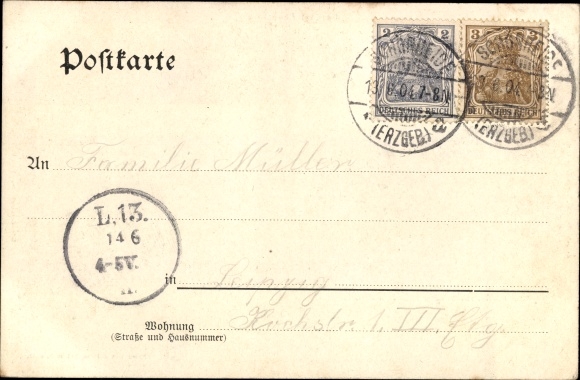 Postkarte
2 2
DEUTSCHES REICH
3 3
DEUTSCHES REICH
SCHÖNHEIDE
13.6.04.7-8.N
(ERZGEB.)
SCHÖNHEIDE
(ERZGEB.)
An Familie Müller
L.13.
14 6
4-5V.
in Leipzig
Wohnung Kochstr. 1. III. Etg.
(Straße und Hausnummer)